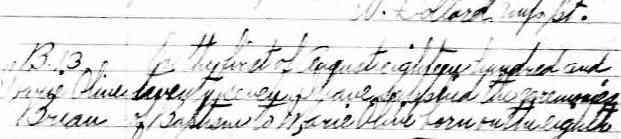 W. Dollard, Miss. pt.
B. 13 On the first of August eighteen hundred and
Marie Olive seventy seven I have supplied the ceremonies
Brian of Baptism to Marie Olive born on the eighth